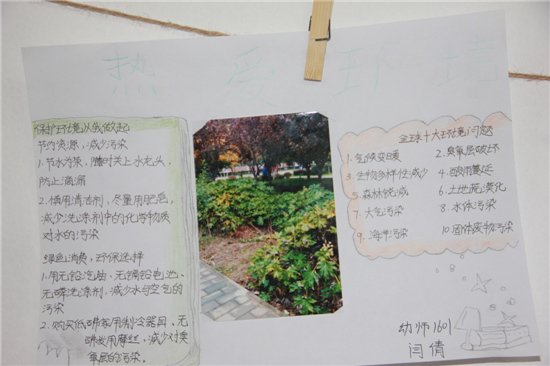 热爱环境
保护环境从我做起
节约资源，减少污染
1.节水为荣，随时关上水龙头，
防止滴漏
2.慎用清洁剂，尽量用肥皂，
减少洗涤剂中的化学物质
对水的污染
绿色消费，环保选择
1.用无铅汽油、无镉铅电池、
无磷洗涤剂，减少水与空气的
污染
2.购买低氟家用制冷器具、无
氟发用摩丝，减少对臭
氧层的污染。
全球十大环境问题
1.气候变暖 2.臭氧层破坏
3.生物多样性减少 4.酸雨蔓延
5.森林锐减 6.土地荒漠化
7.大气污染 8.水体污染
9.海洋污染 10.固体废物污染
幼师1601
闫倩